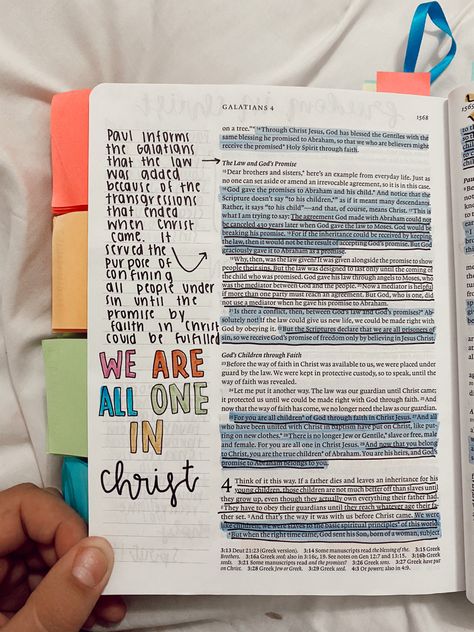 GALATIANS 4
1568
PAUL INFORMS
the GALATIANS
that the LAW
was added
because of the
transgressions
that ended
when CHRIST
came. It
served the
PURPOSE of
confining
all people under
sin until the
promise by
faith in CHRIST
could be fulfilled
WE ARE
ALL ONE
IN
Christ
on a tree.” 14Through Christ Jesus, God has blessed the Gentiles with the
same blessing he promised to Abraham, so that we who are believers might
receive the promised Holy Spirit through faith.
The Law and God’s Promise
15Dear brothers and sisters, here’s an example from everyday life. Just as
no one can set aside or amend an irrevocable agreement, so it is in this case.
16God gave the promises to Abraham and his child. And notice that the
Scripture doesn’t say “to his children,” as if it meant many descendants.
Rather, it says “to his child”—and that, of course, means Christ. 17This is
what I am trying to say: The agreement God made with Abraham could not
be canceled 430 years later when God gave the law to Moses. God would be
breaking his promise. 18For if the inheritance could be received by keeping
the law, then it would not be the result of accepting God’s promise. But God
graciously gave it to Abraham as a promise.
19Why, then, was the law given? It was given alongside the promise to show
people their sins. But the law was designed to last only until the coming of the
child who was promised. God gave his law through angels to Moses, who
was the mediator between God and the people. 20Now a mediator is helpful
if more than one party must reach an agreement. But God, who is one, did
not use a mediator when he gave his promise to Abraham.
21Is there a conflict, then, between God’s law and God’s promises? Ab-
solutely not! If the law could give us new life, we could be made right with
God by obeying it. 22But the Scriptures declare that we are all prisoners of
sin, so we receive God’s promise of freedom only by believing in Jesus Christ.
God’s Children through Faith
23Before the way of faith in Christ was available to us, we were placed under
guard by the law. We were kept in protective custody, so to speak, until the
way of faith was revealed.
24Let me put it another way. The law was our guardian until Christ came;
it protected us until we could be made right with God through faith. 25And
now that the way of faith has come, we no longer need the law as our guardian.
26For you are all children of God through faith in Christ Jesus. 27And all
who have been united with Christ in baptism have put on Christ, like put-
ting on new clothes. 28There is no longer Jew or Gentile, slave or free, male
and female. For you are all one in Christ Jesus. 29And now that you belong
to Christ, you are the true children of Abraham. You are his heirs, and God’s
promise to Abraham belongs to you.
4 Think of it this way. If a father dies and leaves an inheritance for his
young children, those children are not much better off than slaves until
they grow up, even though they actually own everything their father had.
2They have to obey their guardians until they reach whatever age their fa-
ther set. 3And that’s the way it was with us before Christ came. We were
like children; we were slaves to the basic spiritual principles of this world.
4But when the right time came, God sent his Son, born of a woman, subject
3:13 Deut 21:23 (Greek version). 3:14 Some manuscripts read the blessing of the. 3:15 Greek
Brothers. 3:16a Greek seed; also in 3:16c, 19. See notes on Gen 12:7 and 13:15. 3:16b Greek
seeds. 3:21 Some manuscripts read and the promises? 3:26 Greek sons. 3:27 Greek have put
on Christ. 3:28 Greek Jew or Greek. 3:29 Greek seed. 4:3 Or powers; also in 4:9.